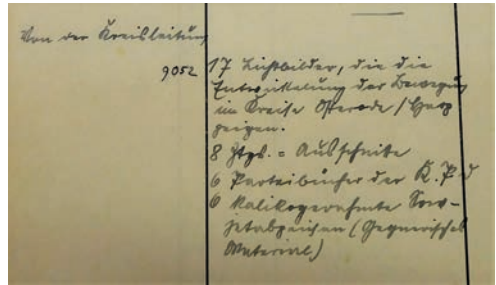 Von der Kreisleitung
9052 17 Lichtbilder, die die
Entwickelung der Bewegung
im Kreise Osterode / Harz
zeigen.
8 Ztgs. = Ausschnitte
6 Parteibücher der K.P.D
6 kalikogerahmte Sow-
jetabzeichen (Gegnerisches
Material)